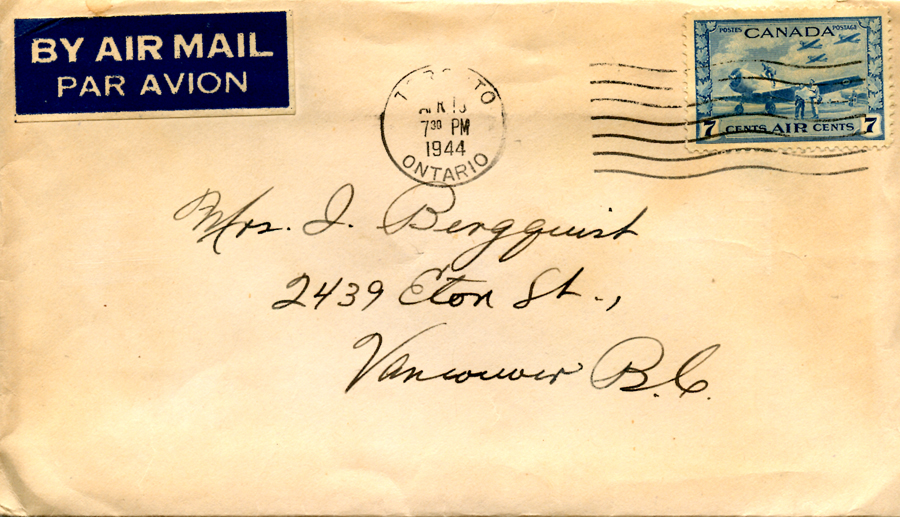 BY AIR MAIL
PAR AVION
TORONTO
APR 13
7 30 PM
1944
ONTARIO
POSTES CANADA POSTAGE
7 CENTS AIR CENTS 7
Mrs. I. Bergquist
2439 Eton St.,
Vancouver B.C.